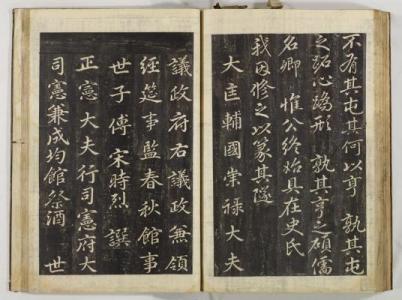 不有其屯其何以亨孰其屯
之跖心跡形孰其亨之碩儒
名卿惟公終始具在史氏
我因修之以篆其隧
大匡輔國崇祿大夫
議政府右議政兼領
經筵事監春秋館事
世子傅宋時烈撰
正憲大夫行司憲府大
司憲兼成均館祭酒世